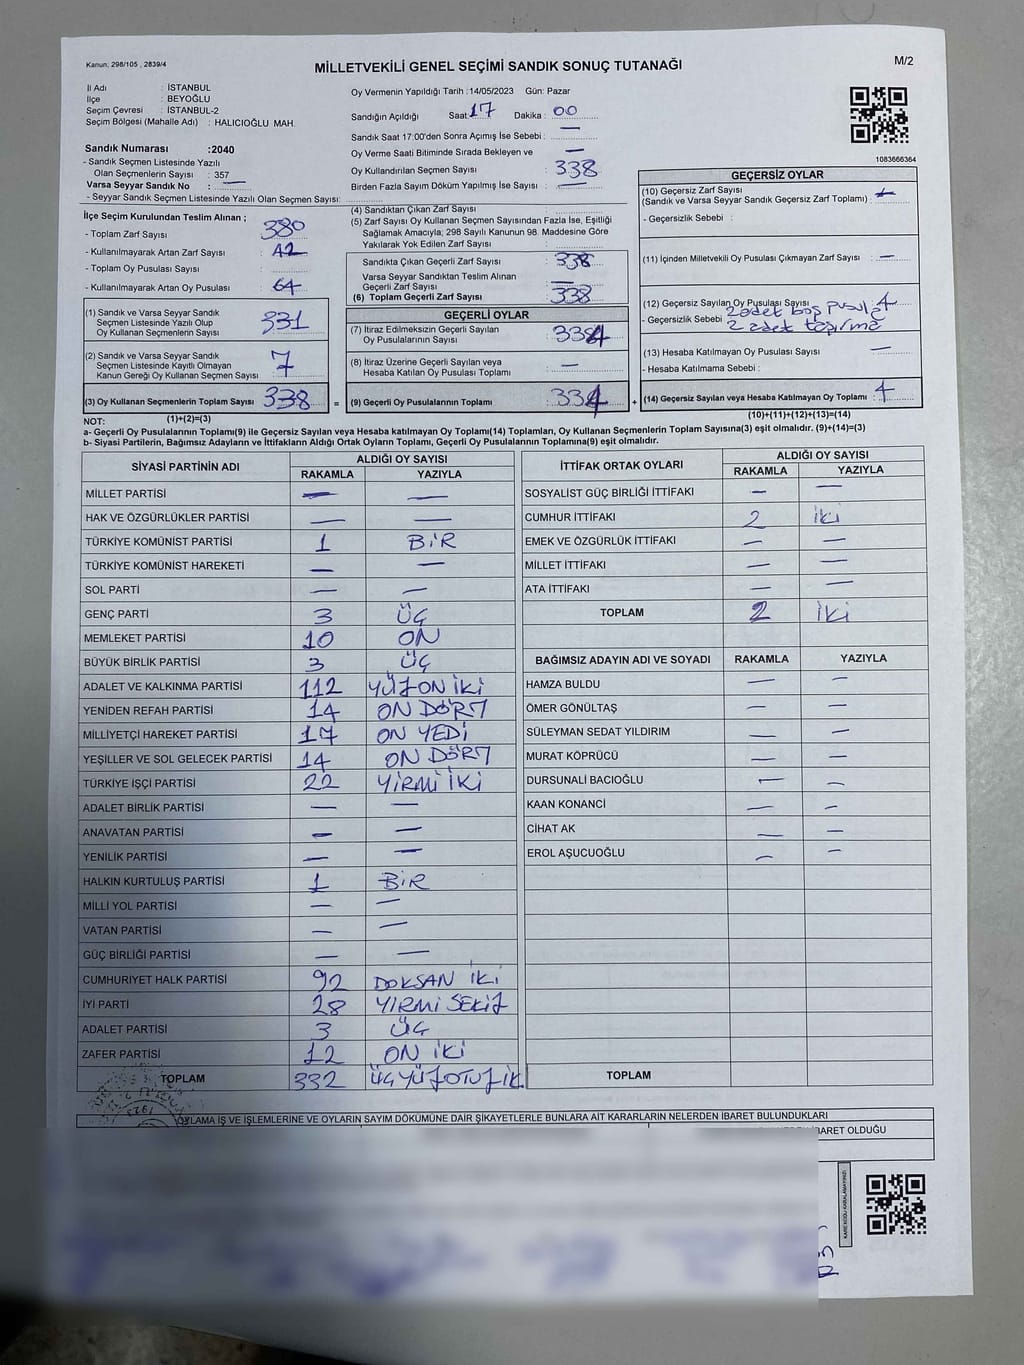 Kanun; 298/105 , 2839/4
MİLLETVEKİLİ GENEL SEÇİMİ SANDIK SONUÇ TUTANAĞI
M/2
İl Adı : İSTANBUL
İlçe : BEYOĞLU
Seçim Çevresi : İSTANBUL-2
Seçim Bölgesi (Mahalle Adı) : HALICIOĞLU MAH.
Sandık Numarası :2040
- Sandık Seçmen Listesinde Yazılı
Olan Seçmenlerin Sayısı : 357
Varsa Seyyar Sandık No : —
- Seyyar Sandık Seçmen Listesinde Yazılı Olan Seçmen Sayısı:
Oy Vermenin Yapıldığı Tarih :14/05/2023 Gün: Pazar
Sandığın Açıldığı Saat 17 Dakika : 00
Sandık Saat 17:00'den Sonra Açımış İse Sebebi : —
Oy Verme Saati Bitiminde Sırada Bekleyen ve —
Oy Kullandırılan Seçmen Sayısı : 338
Birden Fazla Sayım Döküm Yapılmış İse Sayısı : —
1083666364
İlçe Seçim Kurulundan Teslim Alınan ;
- Toplam Zarf Sayısı : 380
- Kullanılmayarak Artan Zarf Sayısı : 42
- Toplam Oy Pusulası Sayısı :
- Kullanılmayarak Artan Oy Pusulası : 64
(1) Sandık ve Varsa Seyyar Sandık
Seçmen Listesinde Yazılı Olup
Oy Kullanan Seçmenlerin Sayısı : 331
(2) Sandık ve Varsa Seyyar Sandık
Seçmen Listesinde Kayıtlı Olmayan
Kanun Gereği Oy Kullanan Seçmen Sayısı : 7
(3) Oy Kullanan Seçmenlerin Toplam Sayısı : 338
(1)+(2)=(3)
(4) Sandıktan Çıkan Zarf Sayısı :
(5) Zarf Sayısı Oy Kullanan Seçmen Sayısından Fazla İse, Eşitliği
Sağlamak Amacıyla; 298 Sayılı Kanunun 98. Maddesine Göre
Yakılarak Yok Edilen Zarf Sayısı :
Sandıkta Çıkan Geçerli Zarf Sayısı : 338
Varsa Seyyar Sandıktan Teslim Alınan
Geçerli Zarf Sayısı : —
(6) Toplam Geçerli Zarf Sayısı : 338
GEÇERLİ OYLAR
(7) İtiraz Edilmeksizin Geçerli Sayılan
Oy Pusulalarının Sayısı : 334
(8) İtiraz Üzerine Geçerli Sayılan veya
Hesaba Katılan Oy Pusulası Toplamı : —
= (9) Geçerli Oy Pusulalarının Toplamı : 334
GEÇERSİZ OYLAR
(10) Geçersiz Zarf Sayısı
(Sandık ve Varsa Seyyar Sandık Geçersiz Zarf Toplamı) : —
- Geçersizlik Sebebi :
(11) İçinden Milletvekili Oy Pusulası Çıkmayan Zarf Sayısı : —
(12) Geçersiz Sayılan Oy Pusulası Sayısı : 4
2 adet boş pusula
- Geçersizlik Sebebi : 2 adet taşırma
(13) Hesaba Katılmayan Oy Pusulası Sayısı : —
- Hesaba Katılmama Sebebi :
+ (14) Geçersiz Sayılan veya Hesaba Katılmayan Oy Toplamı : 4
(10)+(11)+(12)+(13)=(14)
NOT:
a- Geçerli Oy Pusulalarının Toplamı(9) ile Geçersiz Sayılan veya Hesaba katılmayan Oy Toplamı(14) Toplamları, Oy Kullanan Seçmenlerin Toplam Sayısına(3) eşit olmalıdır. (9)+(14)=(3)
b- Siyasi Partilerin, Bağımsız Adayların ve İttifakların Aldığı Ortak Oyların Toplamı, Geçerli Oy Pusulalarının Toplamına(9) eşit olmalıdır.
SİYASİ PARTİNİN ADI ALDIĞI OY SAYISI
RAKAMLA YAZIYLA
MİLLET PARTİSİ — —
HAK VE ÖZGÜRLÜKLER PARTİSİ — —
TÜRKİYE KOMÜNİST PARTİSİ 1 BİR
TÜRKİYE KOMÜNİST HAREKETİ — —
SOL PARTİ — —
GENÇ PARTİ 3 ÜÇ
MEMLEKET PARTİSİ 10 ON
BÜYÜK BİRLİK PARTİSİ 3 ÜÇ
ADALET VE KALKINMA PARTİSİ 112 YÜZ ON İKİ
YENİDEN REFAH PARTİSİ 14 ON DÖRT
MİLLİYETÇİ HAREKET PARTİSİ 17 ON YEDİ
YEŞİLLER VE SOL GELECEK PARTİSİ 14 ON DÖRT
TÜRKİYE İŞÇİ PARTİSİ 22 YİRMİ İKİ
ADALET BİRLİK PARTİSİ — —
ANAVATAN PARTİSİ — —
YENİLİK PARTİSİ — —
HALKIN KURTULUŞ PARTİSİ 1 BİR
MİLLİ YOL PARTİSİ — —
VATAN PARTİSİ — —
GÜÇ BİRLİĞİ PARTİSİ — —
CUMHURİYET HALK PARTİSİ 92 DOKSAN İKİ
İYİ PARTİ 28 YİRMİ SEKİZ
ADALET PARTİSİ 3 ÜÇ
ZAFER PARTİSİ 12 ON İKİ
TOPLAM 332 ÜÇYÜZOTUZİK
İTTİFAK ORTAK OYLARI ALDIĞI OY SAYISI
RAKAMLA YAZIYLA
SOSYALİST GÜÇ BİRLİĞİ İTTİFAKI — —
CUMHUR İTTİFAKI 2 İKİ
EMEK VE ÖZGÜRLÜK İTTİFAKI — —
MİLLET İTTİFAKI — —
ATA İTTİFAKI — —
TOPLAM 2 İKİ
BAĞIMSIZ ADAYIN ADI VE SOYADI RAKAMLA YAZIYLA
HAMZA BULDU — —
ÖMER GÖNÜLTAŞ — —
SÜLEYMAN SEDAT YILDIRIM — —
MURAT KÖPRÜCÜ — —
DURSUNALİ BACIOĞLU — —
KAAN KONANCİ — —
CİHAT AK — —
EROL AŞUCUOĞLU — —
TOPLAM
OYLAMA İŞ VE İŞLEMLERINE VE OYLARIN SAYIM DÖKÜMÜNE DAİR ŞİKAYETLERLE BUNLARA AİT KARARLARIN NELERDEN İBARET BULUNDUKLARI
İBARET OLDUĞU